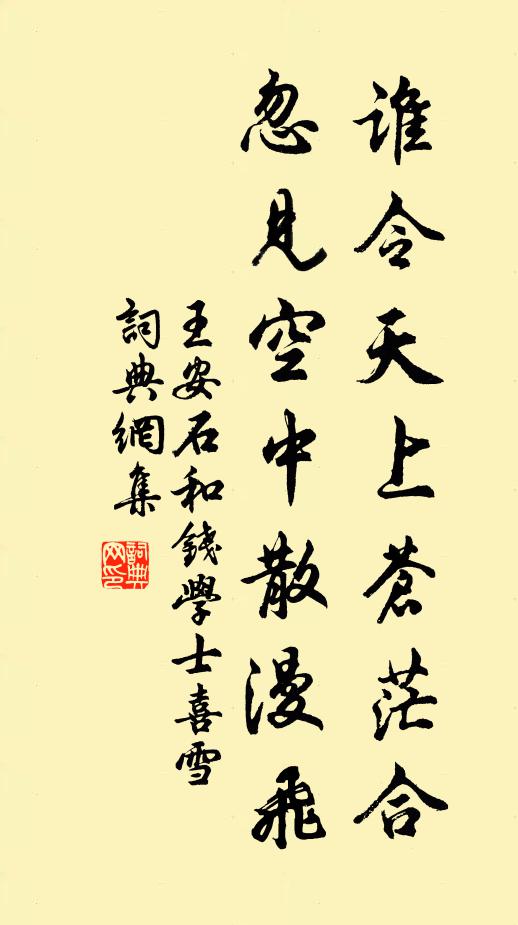 誰令天上蒼茫合
忽見空中散漫飛
王安石和錢學士喜雪
詞典網集
詞典網印